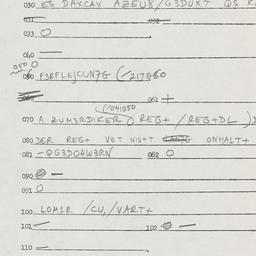 030 ES DAXCAX AZEU8/G3DUXT QS
031 — 032 —
033 O
040 —
050 O
060 F3RFLEJCUN7G (/217860
061 +
(/041050
070 A ZUM3RDIKER O REG+ / REG+DL )
080 DER REG+ VET NIS+T ONHALT+
081 -QG3DO4W3RN 082 O
090 —
091 O
100 LOM2R /CU,/VART+
101 — 102 —
110 —